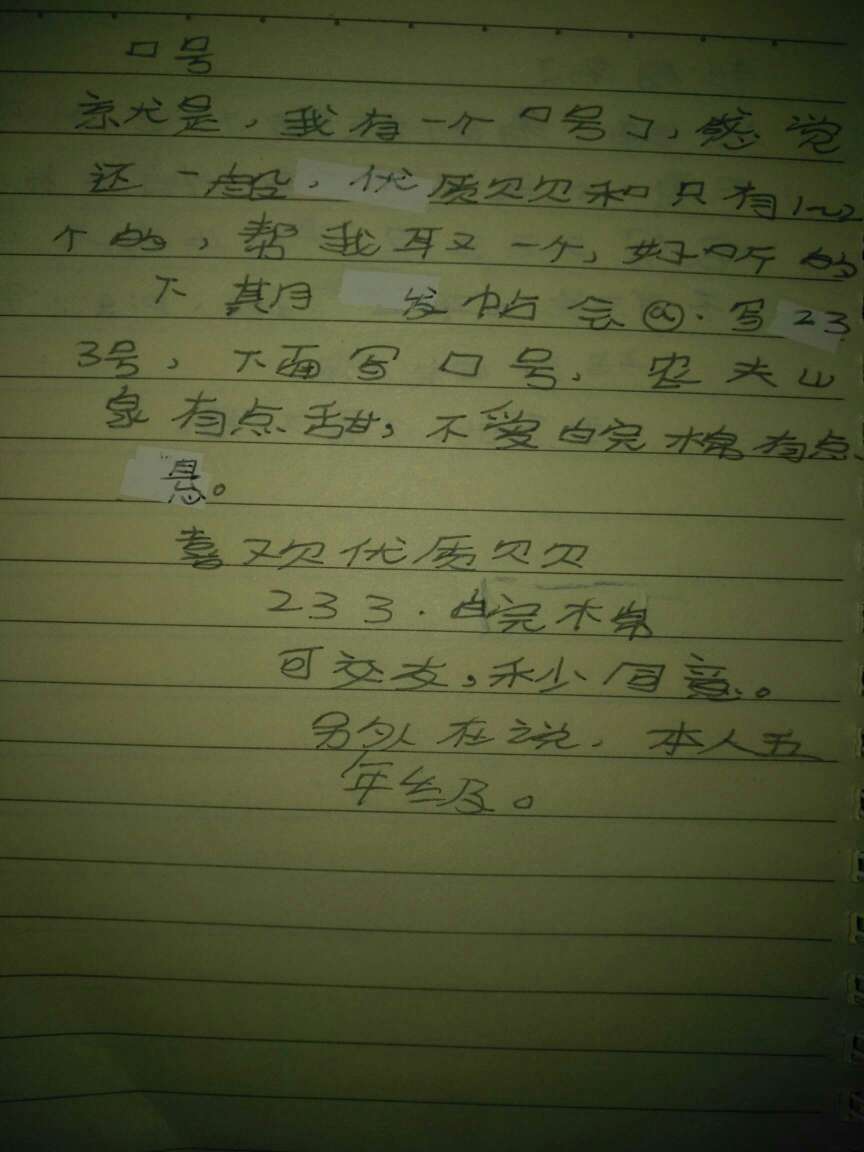 口号
就是，我有一个口号了，感觉
还一般，优质贝贝和只有1~2
个的，帮我取一个，好听的
下期 发帖会@.写23
3号，下面写口号，农夫山
泉有点甜，不爱白完棉有点
悬。
喜欢优质贝贝
233.白完棉
可交友，私少同意。
另外在说，本人五
年级。